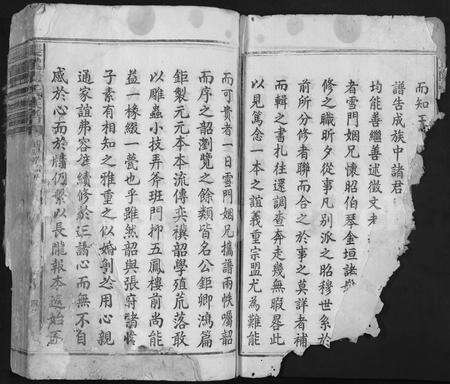 而知
譜告成族中諸君
均能善繼善述徵文考
者雪門姻兄懷昭伯琴金垣
修之職昕夕從事凡別派之昭穆世系於
前所分修者聯而合之於事之莫詳者補
而輯之書扎往還調查奔走幾無暇晷此
以見篤念一本之誼義重宗盟尤為難能
而可貴者一日雪門姻兄攜譜兩帙囑韶
而序之韶瀏覽之餘類皆名公鉅卿鴻篇
鉅製元元本本流傳奕禩韶學殖荒落敢
以雕蟲小技弄斧班門抑五鳳樓前尚能
益一椽綴一甍也乎雖然韶與張府諸
子素有相知之雅重之以婚創之用心親
通家誼弗容
感於心而於